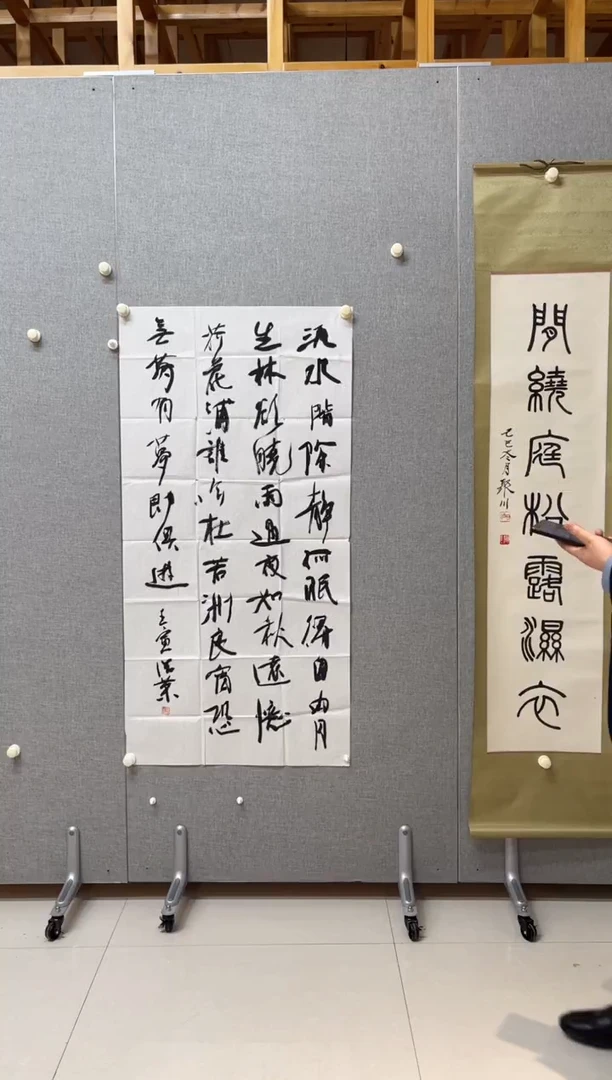 閒繞庭松露濕衣
乙巳冬月聚川
流水階除静孤眠得自由月
生林欲曉雨過夜如秋遠憶
荷花浦誰吟杜若洲良宵恐
無夢有夢即俱遊
壬寅